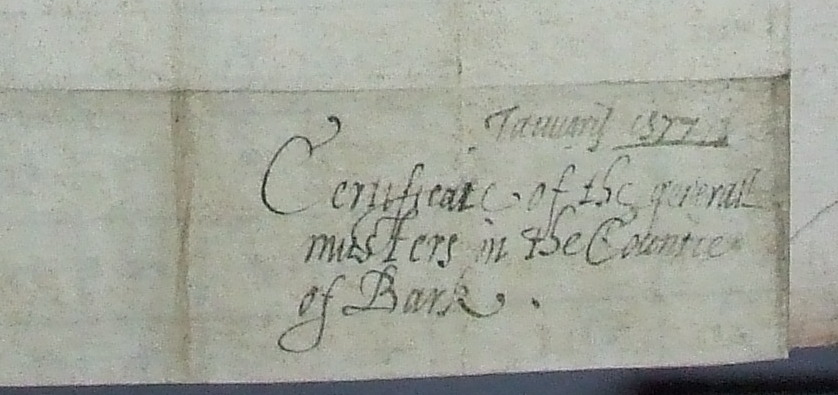 Januarij 1577
Certificate of the generall
musters in the Countie
of Bark.